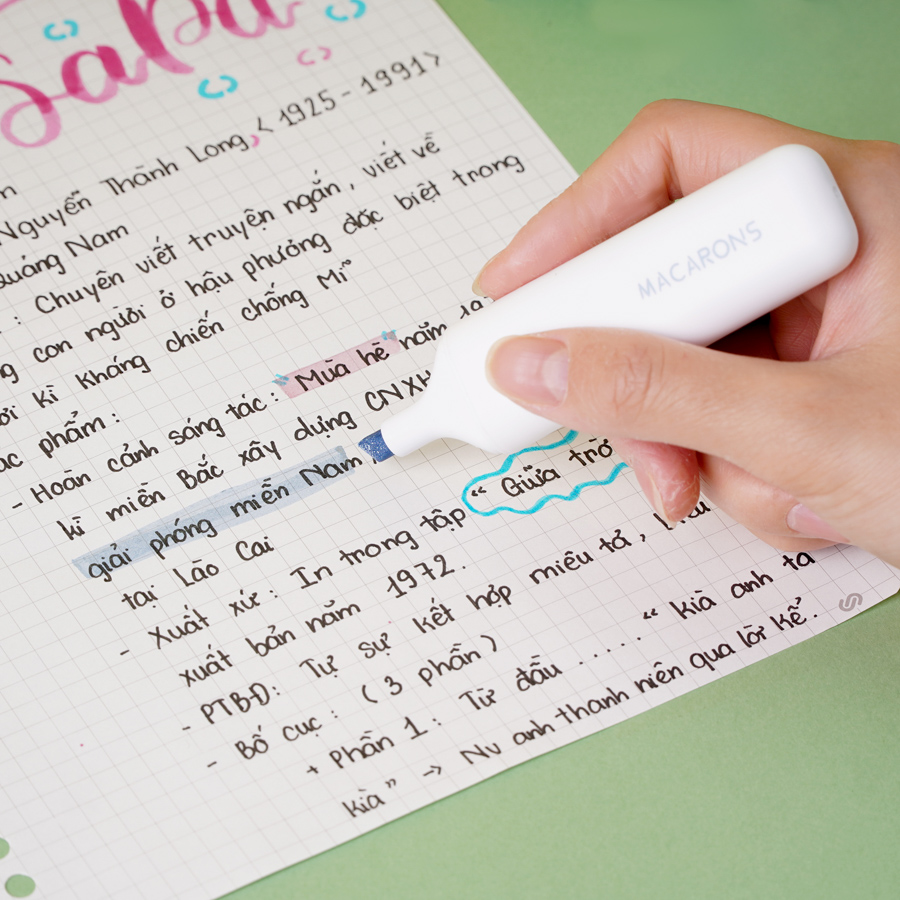 SaPa
<1925 - 1991>
Nguyễn Thành Long,
Quảng Nam
: Chuyên viết truyện ngắn, viết về
con người ở hậu phương đặc biệt trong
kì kháng chiến chống Mĩ
phẩm:
- Hoàn cảnh sáng tác: "Mùa hè" năm
kì miền Bắc xây dựng CNXH
giải phóng miền Nam
tại Lào Cai
- Xuất xứ: In trong tập "Giữa trờ
xuất bản năm 1972.
- PTBĐ: Tự sự kết hợp miêu tả,
- Bố cục: (3 phần)
+ Phần 1: Từ đầu ..... "kìa anh ta
kìa" -> Nv anh thanh niên qua lời kể.
MACARONS